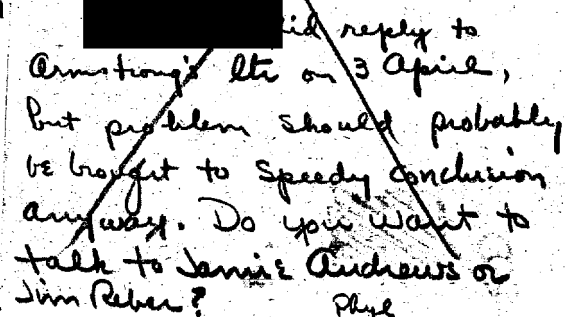 did reply to
Armstrong's ltr on 3 April,
but problem should probably
be brought to speedy conclusion
anyway. Do you want to
talk to Jamie Andrews or
Jim Reber?
Phyl